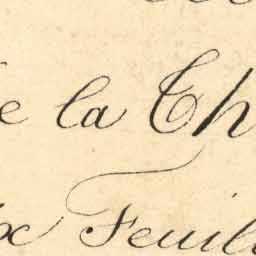 e la Th
x Feuil